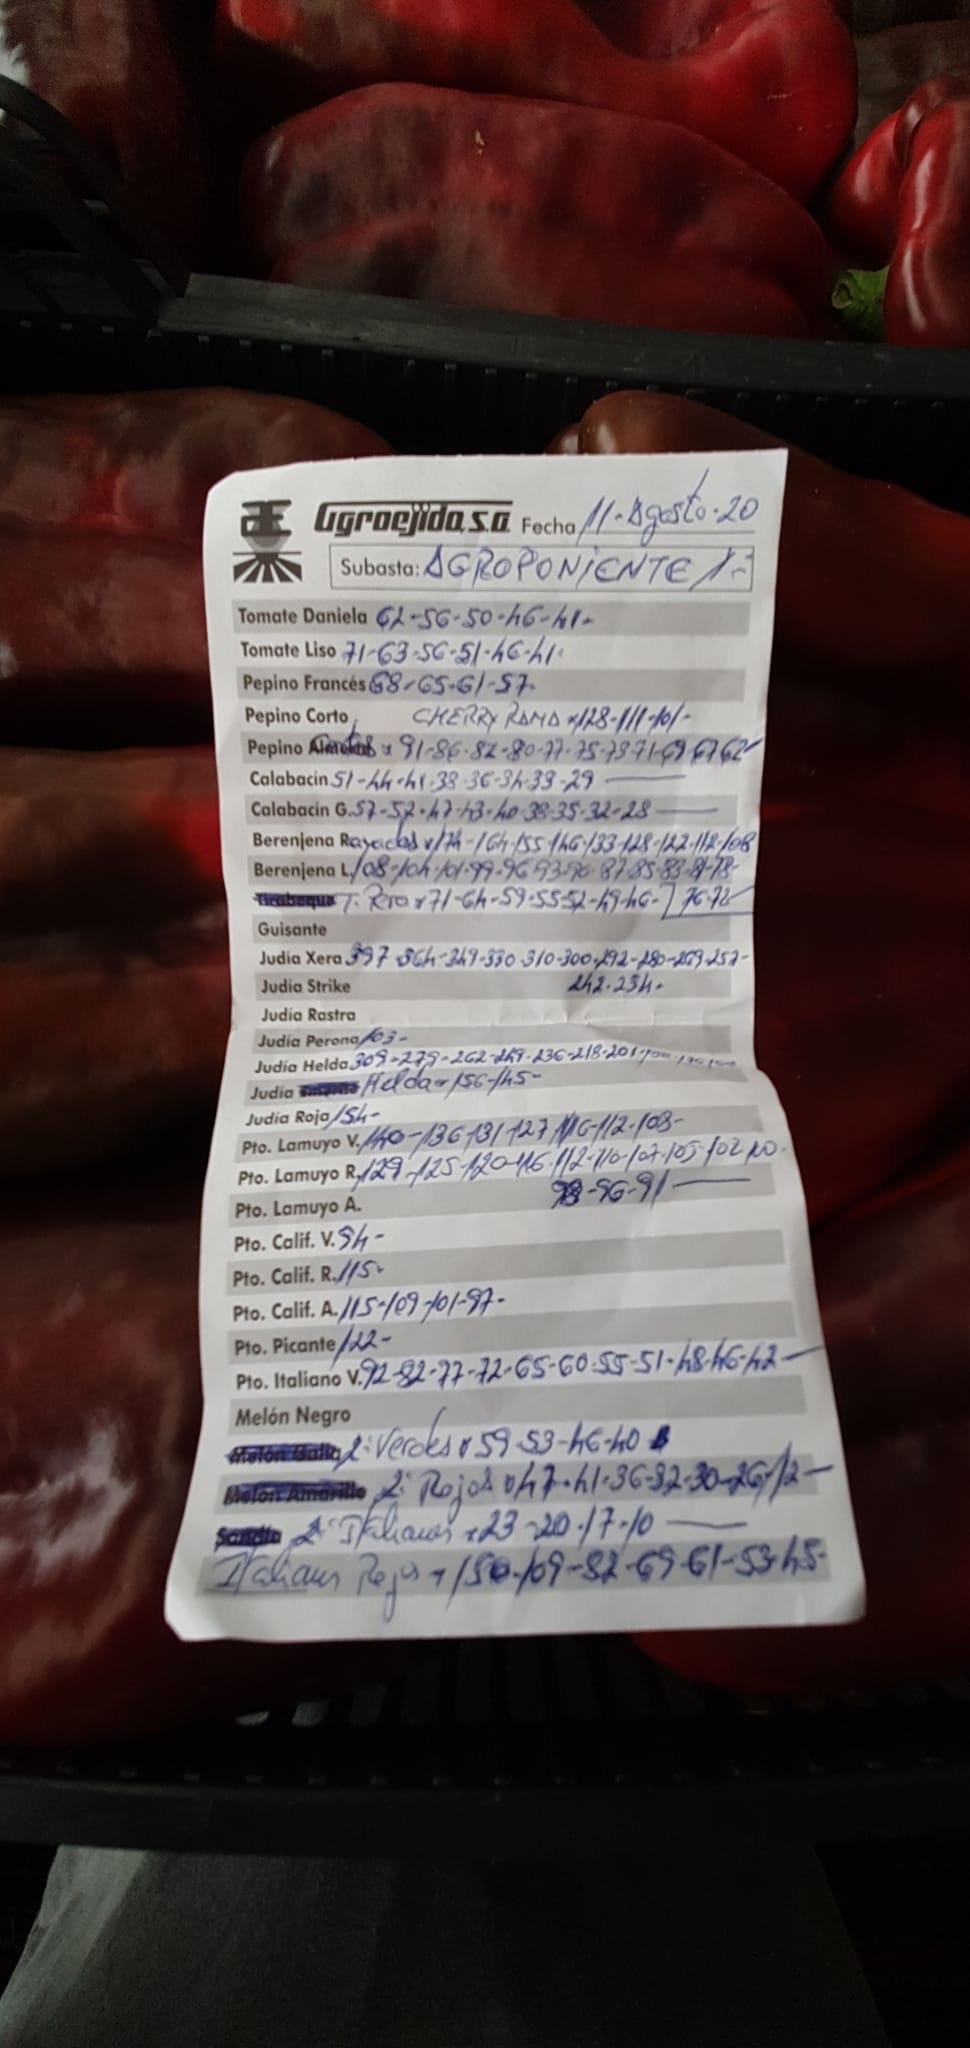 Agroejido, s.a. Fecha 11-Agosto-20
Subasta: AGROPONIENTE
Tomate Daniela 62-56-50-46-41-
Tomate Liso 71-63-56-51-46-41-
Pepino Francés 68-65-61-57-
Pepino Corto CHERRY RAMA x 128-111-101-
Pepino x 91-86-82-80-77-75-73-71-69-67-62
Calabacín 51-44-41-38-36-34-33-29
Calabacín G. 57-52-47-43-40-38-35-32-28
Berenjena Rayadas x 174-164-155-146-133-128-122-112-108
Berenjena L. 108-104-101-99-96-93-90-87-85-83-81-78-
T. Pera x 71-64-59-55-52-49-46- 76-72
Guisante
Judía Xera 397-364-349-330-310-300-292-280-269-257-
Judía Strike 242-234-
Judía Rastra
Judía Perona 103-
Judía Helda 309-279-262-249-236-218-201-
Judía Helda x 156-145-
Judía Roja 154-
Pto. Lamuyo V. 140-136-131-127-116-112-108-
Pto. Lamuyo R. 129-125-120-116-112-110-107-105-102
Pto. Lamuyo A. 98-96-91
Pto. Calif. V. 94-
Pto. Calif. R. 115-
Pto. Calif. A. 115-109-101-97-
Pto. Picante 122-
Pto. Italiano V. 92-82-77-72-65-60-55-51-48-46-42
Melón Negro
Melón Galia 2ª Verdes x 59-53-46-40
Melón Amarillo 2ª Rojos x 47-41-36-32-30-26-12
Sandía 2ª Italianos x 23-20-17-10
Italianos Rojos x 150-109-82-69-61-53-45-